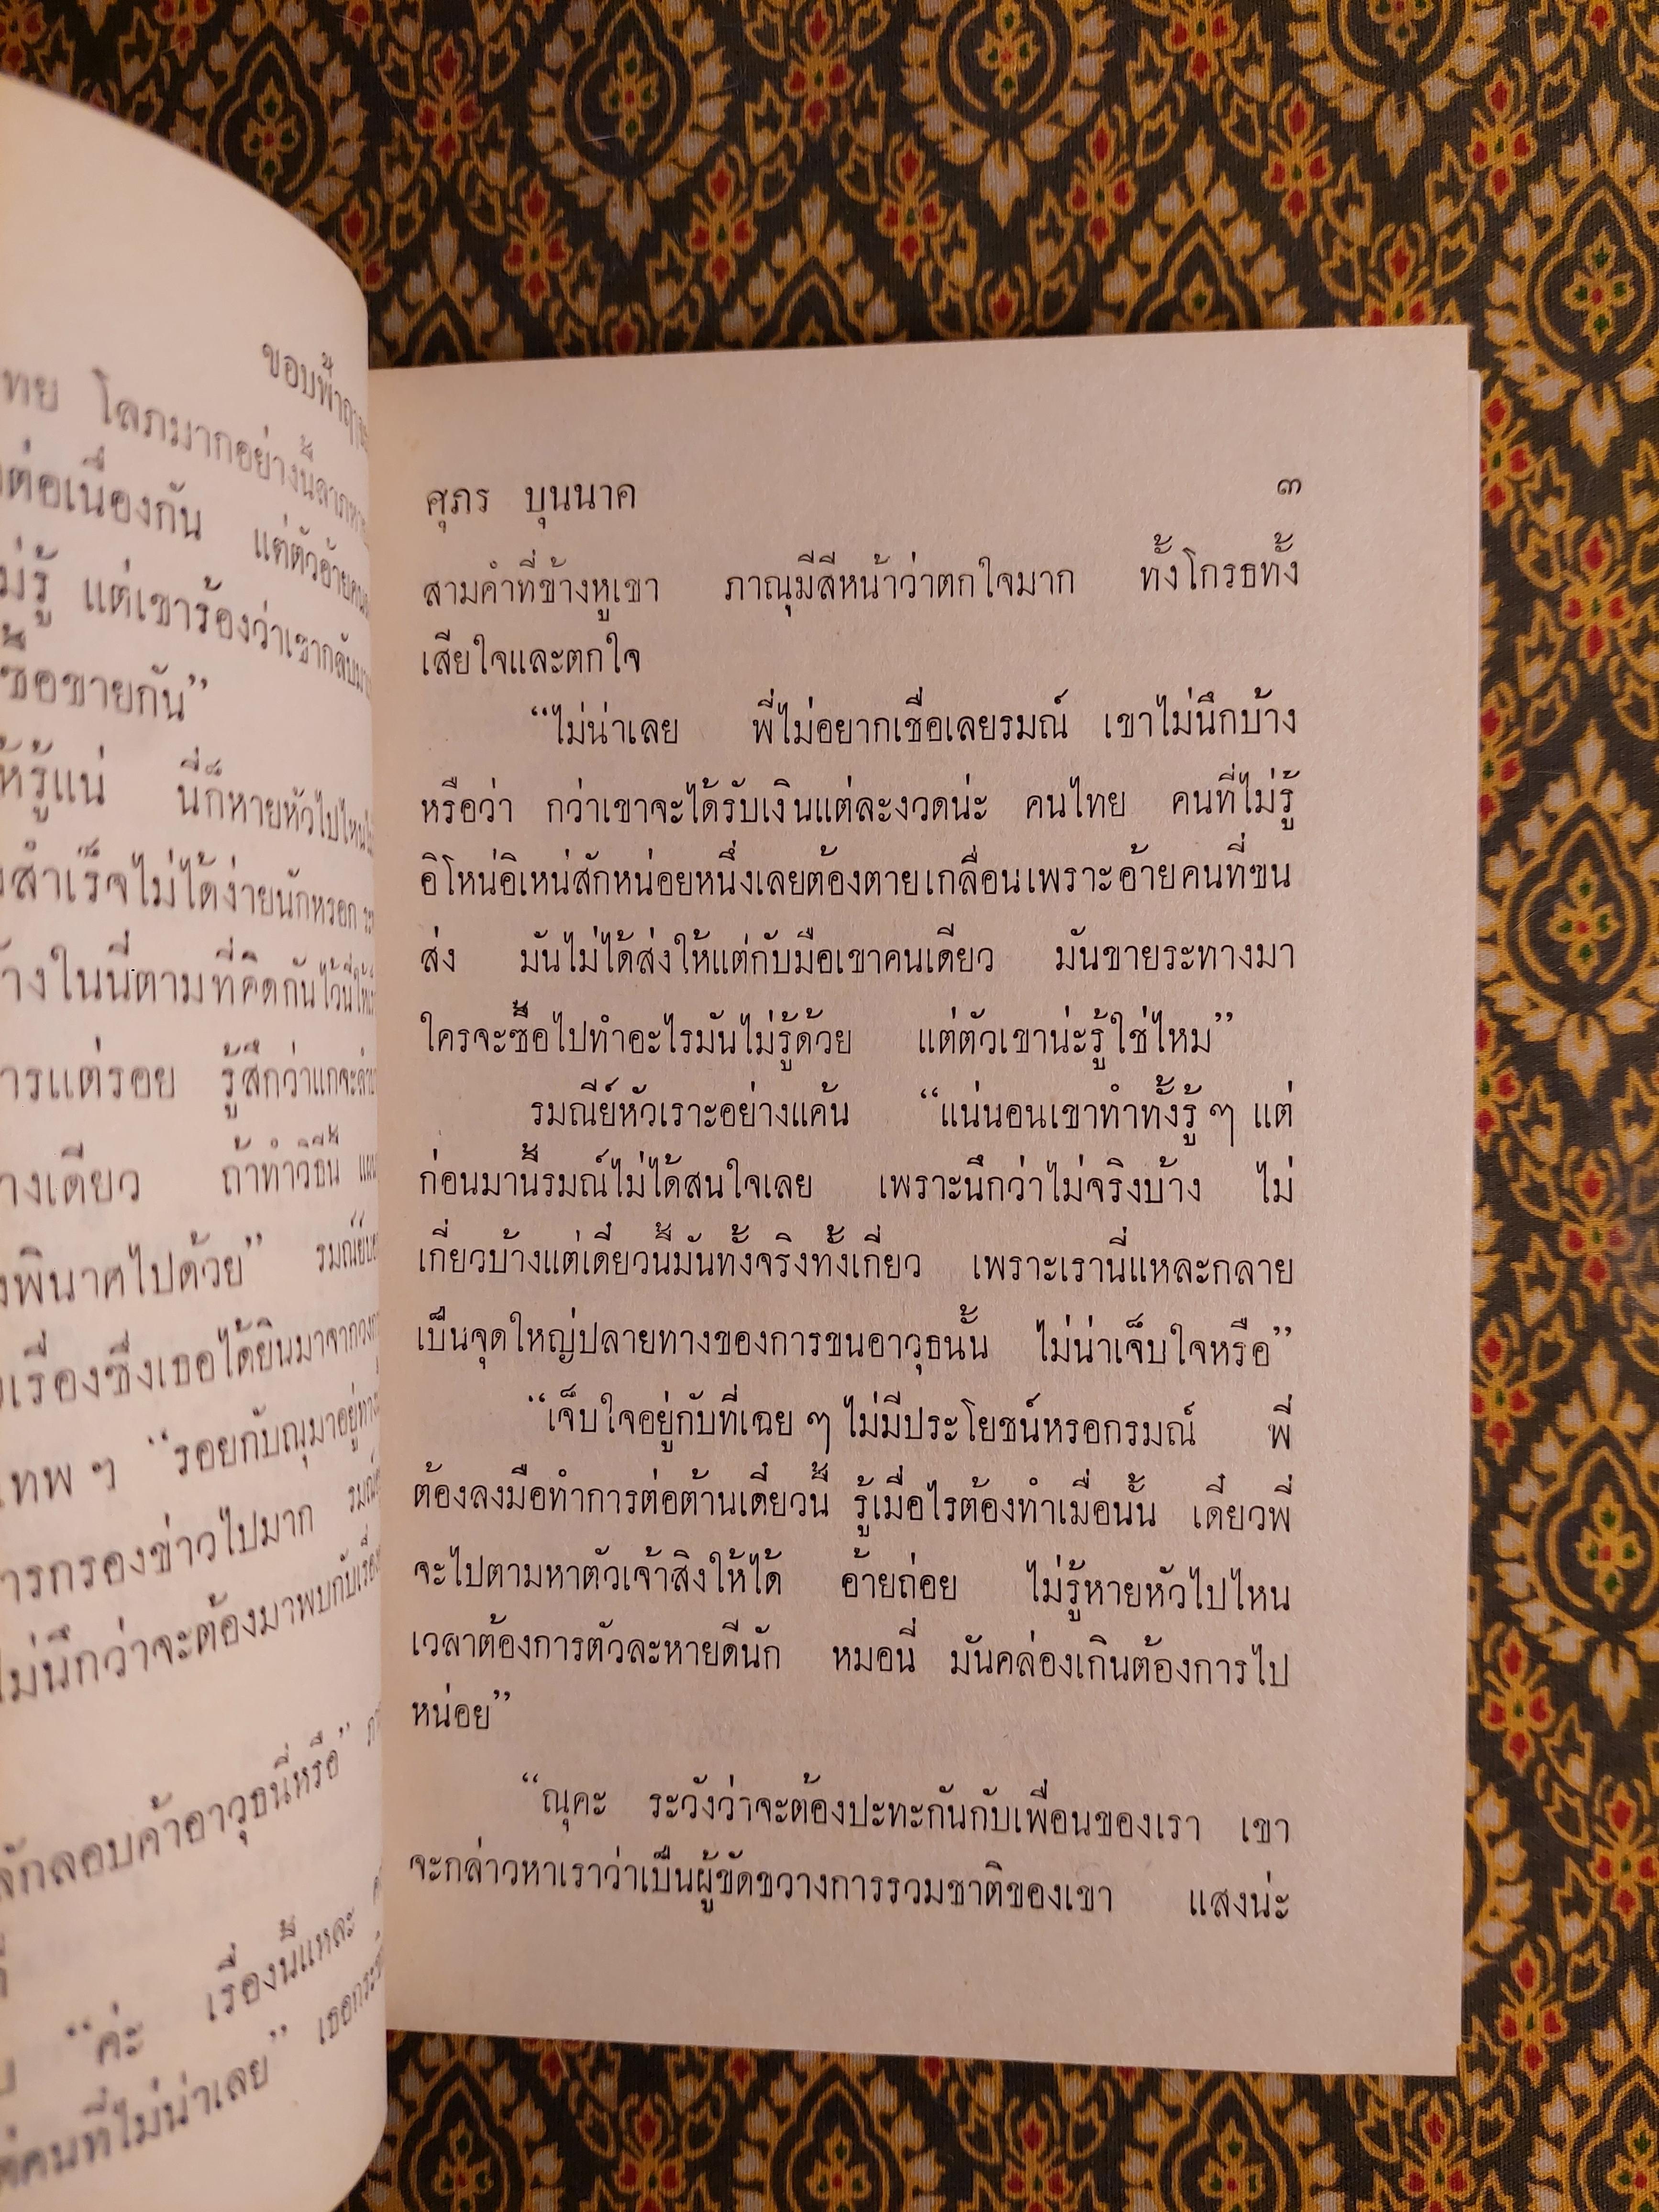 ขอบฟ้า
ทย โลภมากอย่างนี้ลาภหาย
ต่อเนื่องกัน แต่ตัวอ้าย
ม่รู้ แต่เขาร้องว่าเขากลับมา
ซื้อขายกัน”
ห้รู้แน่ นี่ก็หายหัวไปไหน
สำเร็จไม่ได้ง่ายนักหรอก
างในนี่ตามที่คิดกันไว้นี่
ารแต่รอย รู้สึกว่าแกจะ
างเดียว ถ้าทำวิธีนี้
งพินาศไปด้วย” รมณีย์
เรื่องซึ่งเธอได้ยินมาจากวง
ทพ ๆ “รอยกับณุมาอยู่
ารกรองข่าวไปมาก
ไม่นึกว่าจะต้องมาพบกับเรื่อง
ลักลอบค้าอาวุธนี่หรือ”
“ค่ะ เรื่องนี้แหละ
คนที่ไม่น่าเลย” เธอกระ
ศุภร บุนนาค ๓
สามคำที่ข้างหูเขา ภาณุมีสีหน้าว่าตกใจมาก ทั้งโกรธทั้ง
เสียใจและตกใจ
“ไม่น่าเลย พี่ไม่อยากเชื่อเลยรมณ์ เขาไม่นึกบ้าง
หรือว่า กว่าเขาจะได้รับเงินแต่ละงวดน่ะ คนไทย คนที่ไม่รู้
อิโหน่อิเหน่สักหน่อยหนึ่งเลยต้องตายเกลื่อนเพราะอ้ายคนที่ขน
ส่ง มันไม่ได้ส่งให้แต่กับมือเขาคนเดียว มันขายระทางมา
ใครจะซื้อไปทำอะไรมันไม่รู้ด้วย แต่ตัวเขาน่ะรู้ใช่ไหม”
รมณีย์หัวเราะอย่างแค้น “แน่นอนเขาทำทั้งรู้ ๆ แต่
ก่อนมานี้รมณ์ไม่ได้สนใจเลย เพราะนึกว่าไม่จริงบ้าง ไม่
เกี่ยวบ้างแต่เดี๋ยวนี้มันทั้งจริงทั้งเกี่ยว เพราะเรานี่แหละกลาย
เป็นจุดใหญ่ปลายทางของการขนอาวุธนั้น ไม่น่าเจ็บใจหรือ”
“เจ็บใจอยู่กับที่เฉย ๆ ไม่มีประโยชน์หรอกรมณ์ พี่
ต้องลงมือทำการต่อต้านเดี๋ยวนี้ รู้เมื่อไรต้องทำเมื่อนั้น เดี๋ยวพี่
จะไปตามหาตัวเจ้าสิงให้ได้ อ้ายถ่อย ไม่รู้หายหัวไปไหน
เวลาต้องการตัวละหายดีนัก หมอนี่ มันคล่องเกินต้องการไป
หน่อย”
“ณุคะ ระวังว่าจะต้องปะทะกันกับเพื่อนของเรา เขา
จะกล่าวหาเราว่าเป็นผู้ขัดขวางการรวมชาติของเขา แสงน่ะ